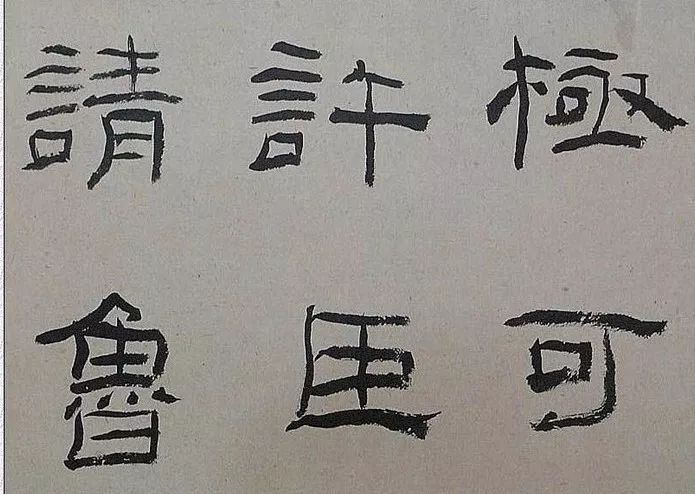 極可
許臣
請魯